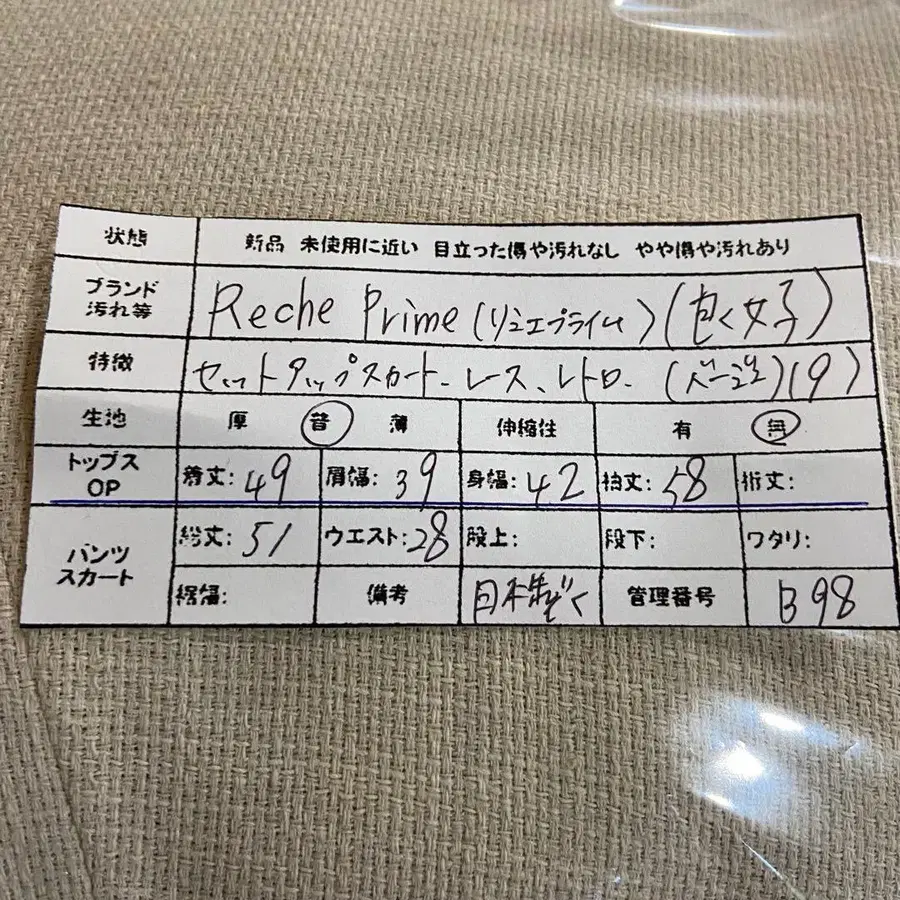 状態 新品 未使用に近い 目立った傷や汚れなし やや傷や汚れあり
ブランド 汚れ等 Reche Prime (リュエプライム)
特徴 セットアップスカート、レース、レトロ、 (9)
生地 厚 普 薄 伸縮性 有 無
トップス OP 着丈: 49 肩幅: 39 身幅: 42 袖丈: 58 裄丈:
パンツ スカート 総丈: 51 ウエスト: 28 股上: 股下: ワタリ:
裾幅: 備考 日本製 管理番号 B98